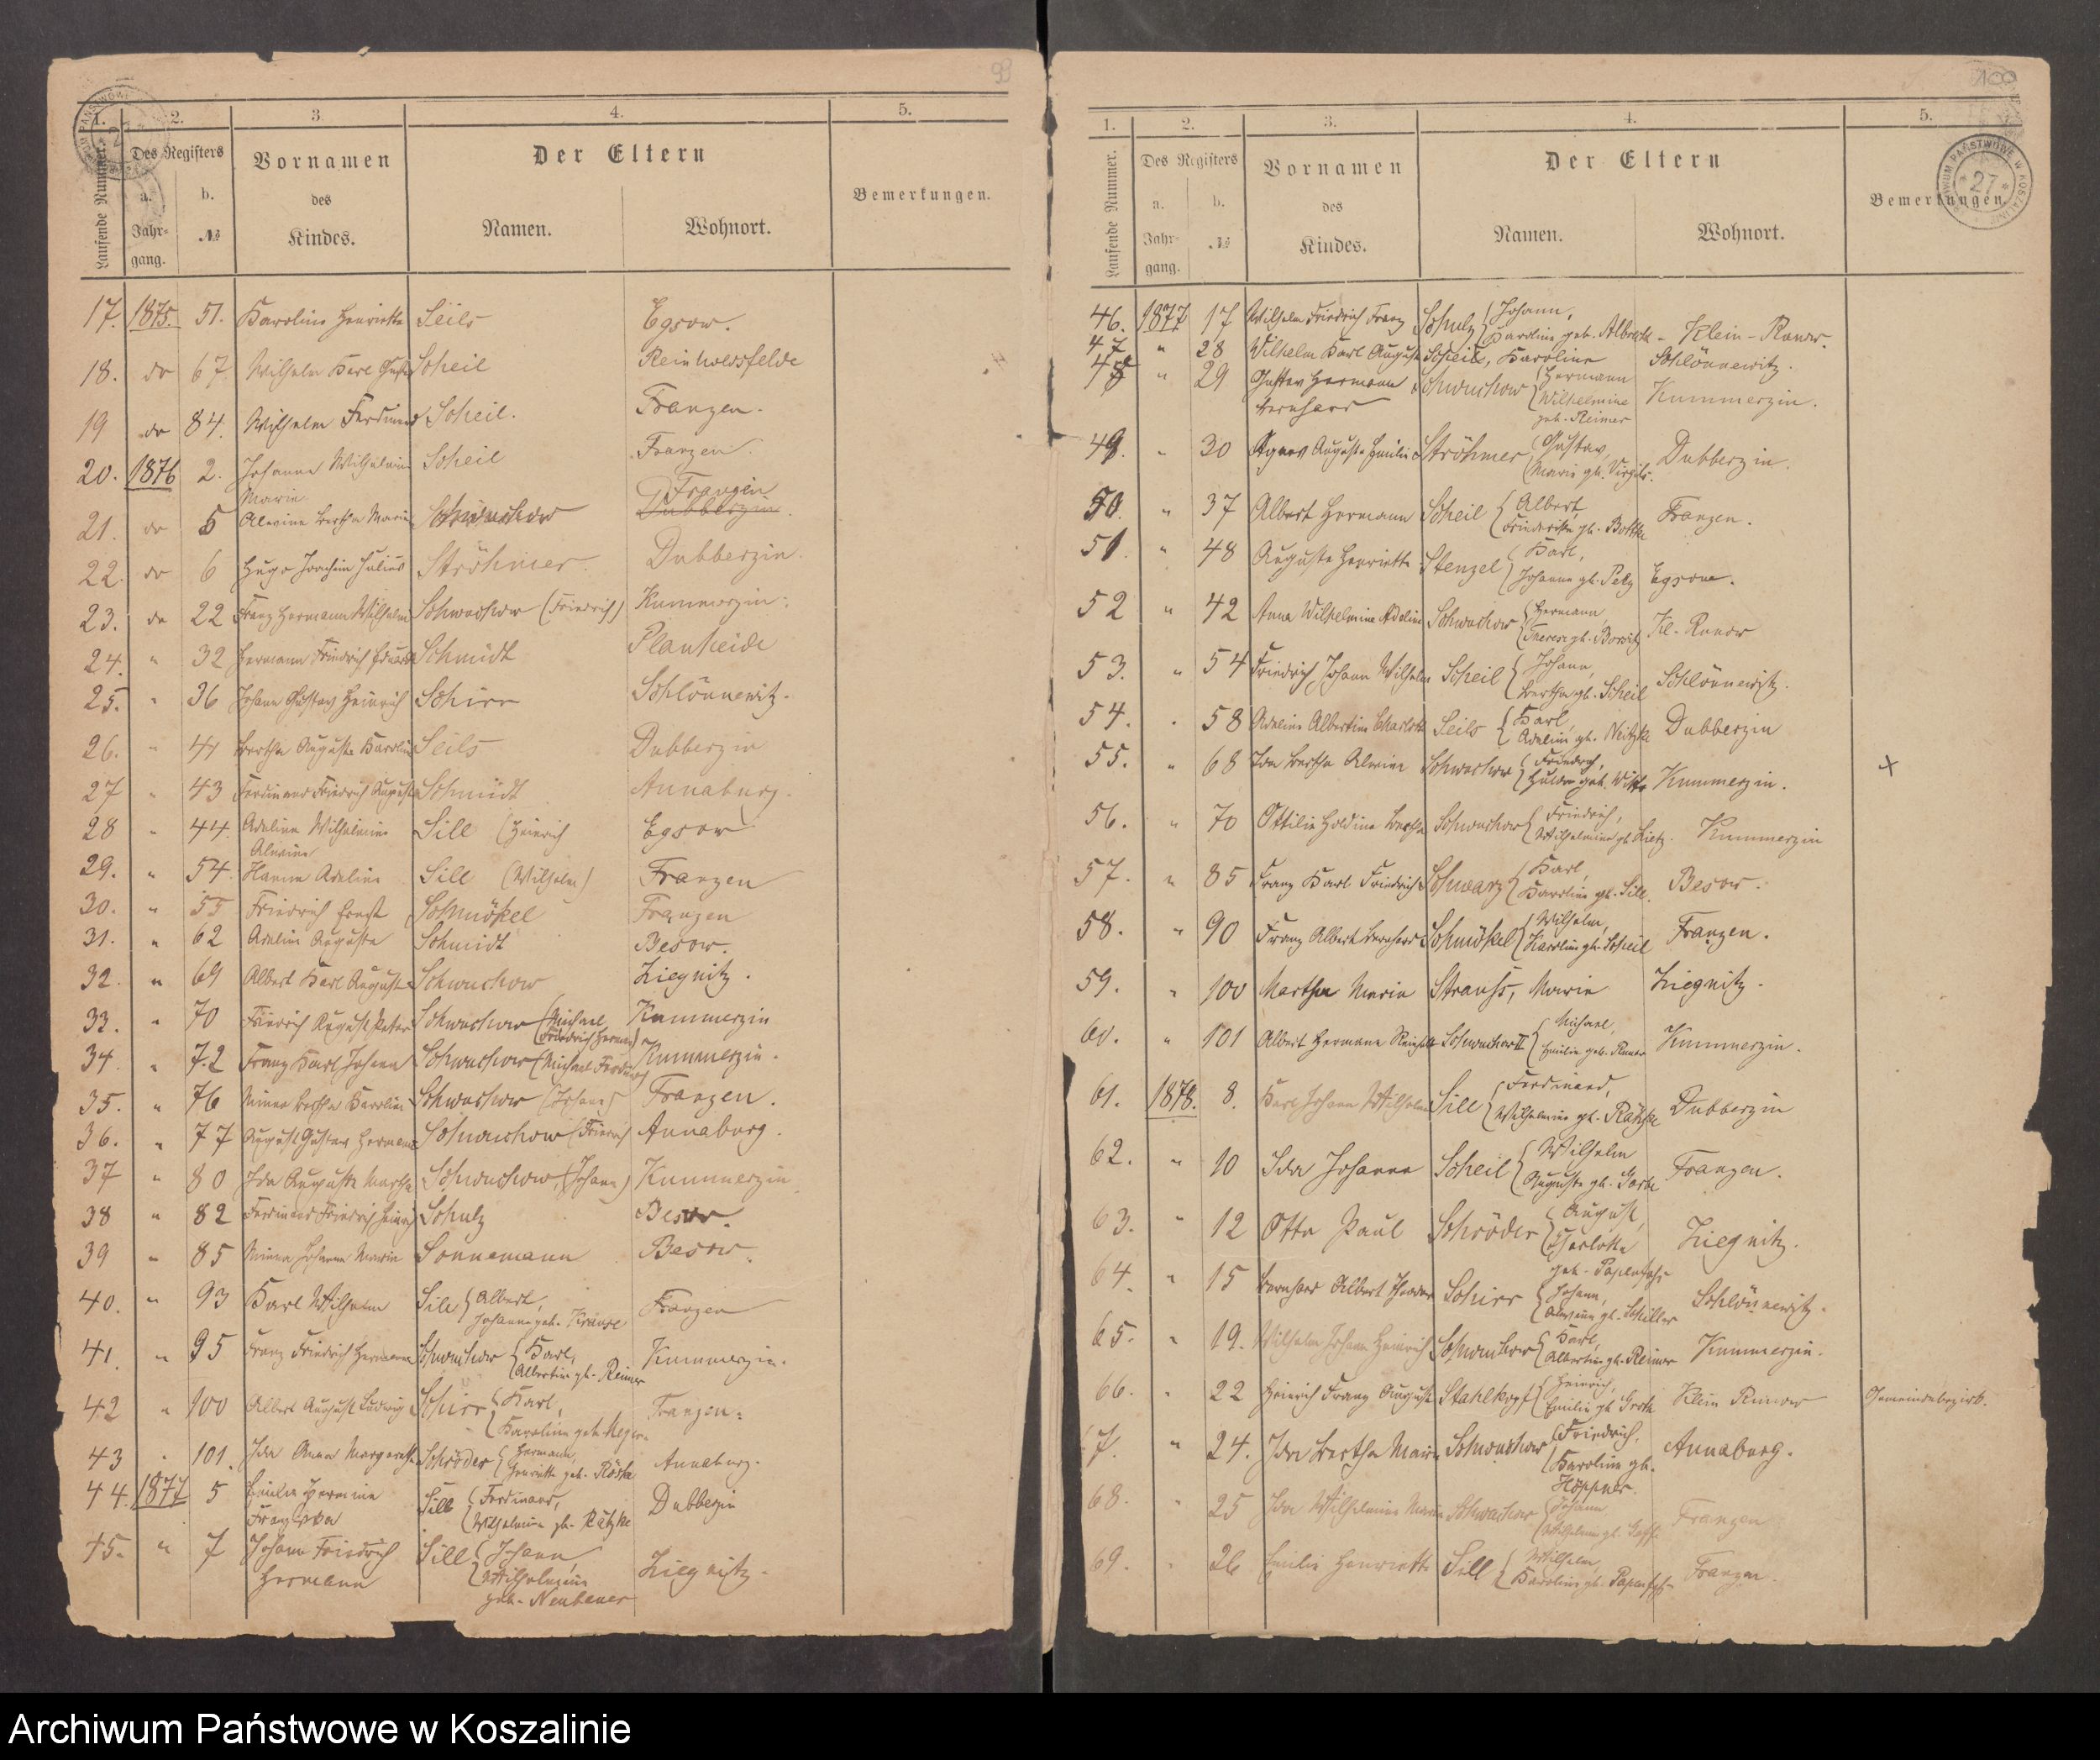 99
1. 2. 3. 4. 5.
Laufende Nummer. Des Registers Vornamen Der Eltern
a. b. des Bemerkungen.
Jahr- № Kindes. Namen. Wohnort.
gang.
17. 1875. 51. Karoline Henriette Seils Egsow.
18. do 67 Wilhelm Karl Scheil Reinholdsfelde
19 do 84. Wilhelm Ferdinand Scheil. Franzen.
20. 1876 2. Johanne Wilhelmine Scheil Franzen.
Marie Franzen
21. do 5 Alwine Bertha Marie Schwuchow Dubberzin.
22. do 6 Hugo Joachim Julius Ströhmer. Dubberzin.
23. do 22 Franz Hermann Wilhelm Schwuchow (Friedrich) Kummerzin.
24. " 32 Hermann Friedrich Eduard Schmidt Planheide
25. " 36 Johann Gustav Heinrich Schirr Schlönnewitz.
26. " 41 Bertha Auguste Karoline Seils Dubberzin
27 " 43 Ferdinand Friedrich August Schmidt Annaburg.
28 " 44. Adeline Wilhelmine Sill (Heinrich Egsow
Alwine
29. " 54. Hanna Adeline Sill (Wilhelm) Franzen
30. " 55 Friedrich Ernst Schmökel Franzen
31. " 62 Adeline Auguste Schmidt Besow.
32. " 69 Albert Karl August Schwuchow Ziegnitz.
33. " 70 Friedrich August Schwuchow (Michael Kummerzin
(Friedrich Herman)
34. " 72 Franz Karl Johann Schwuchow (Michael Ferdinand Kummerzin.
35. " 76 Minna Bertha Karoline Schwuchow (Johann) Franzen.
36. " 77 August Gustav Hermann Schwuchow (Friedrich Annaburg.
37 " 80 Ida Auguste Martha Schwuchow, (Johann) Kummerzin
38 " 82 Ferdinand Friedrich Heinrich Schulz Besow.
39 " 85 Minna Johanna Marie Sonnemann Besow.
40. " 93 Karl Wilhelm Sill Albert, Franzen
Johanne geb. Krause
41. " 95 Franz Friedrich Hermann Schwuchow Karl, Kummerzin.
Albertine gb. Reimer
42 " 100 Albert August Ludwig Schirr Karl, Franzen.
Karoline geb. Meyer
43 " 101. Ida Anna Margarethe Schröder Hermann, Annaburg.
Henriette geb. Röske
44. 1877 5 Emilie Hermine Sill Ferdinand, Dubberzin
Franziska Wilhelmine gb. Rätzke
45. " 7 Johann Friedrich Sill Johann, Ziegnitz.
Hermann Wilhelmine
geb. Neubauer
100
1. 2. 3. 4. 5.
Laufende Nummer. Des Registers Vornamen Der Eltern
a. b. des Bemerkungen.
Jahr- № Kindes. Namen. Wohnort.
gang.
ARCHIWUM PAŃSTWOWE W KOSZALINIE
* 27 *
46. 1877 17 Wilhelm Friedrich Franz Schulz Johann, Klein-Runow.
Karoline geb. Albrecht
47 " 28 Wilhelm Karl August Scheil, Karoline Schlönnewitz.
48 " 29 Gustav Hermann Schwuchow Hermann Kummerzin.
Bernhard Wilhelmine
geb. Reimer
49. " 30 Agnes Auguste Emilie Ströhmer Gustav, Dubberzin.
Marie gb. Virgils.
50. " 37 Albert Hermann Scheil Albert, Franzen.
Friederike gb. Bottke
51. " 48 Auguste Henriette Stenzel Karl, Egsow.
Johanne gb. Petz
52 " 42 Anna Wilhelmine Adeline Schwuchow Hermann, Kl. Runow
Therese gb. Borwitz
53. " 54 Friedrich Johann Wilhelm Scheil Johann, Schlönnewitz.
Bertha gb. Scheil
54. " 58 Adeline Albertine Charlotte Seils Karl, Dubberzin
Adeline gb. Neitzke
55. " 68 Ida Bertha Alwine Schwuchow Friedrich, Kummerzin. x
Hulda geb. Witt
56. " 70 Ottilie Holdine Bertha Schwuchow Friedrich, Kummerzin
Wilhelmine gb. Lietz.
57. " 85 Franz Karl Friedrich Schwarz Karl, Besow.
Karoline gb. Sill.
58. " 90 Franz Albert Bernhard Schmökel Wilhelm, Franzen.
Karoline gb. Scheil
59. " 100 Martha Marie Strauss, Marie Ziegnitz.
60. " 101 Albert Hermann Reinhold Schwuchow II Michael, Kummerzin.
Emilie geb. Ramer
61. 1878. 8. Karl Johann Wilhelm Sill Ferdinand, Dubberzin
Wilhelmine gb. Rätzke
62. " 10 Ida Johanna Scheil Wilhelm Franzen.
Auguste gb. Garbe
63. " 12 Otto Paul Schröder August, Ziegnitz.
Charlotte
geb. Papenfuß
64. " 15 Bernhard Albert Theodor Schirr Johann, Schlönnewitz.
Alwine gb. Schiller
65. " 19. Wilhelm Johann Heinrich Schwuchow Karl, Kummerzin.
Albertine gb. Reimer
66. " 22 Heinrich Franz August Stahlkopf Heinrich, Klein Runow Gemeindebezirk.
Emilie gb. Groth
7. " 24. Ida Bertha Marie Schwuchow Friedrich, Annaburg.
Karoline gb.
Höppner.
68. " 25 Ida Wilhelmine Marie Schwuchow Johann Franzen
Wilhelmine gb.
69. " 26 Emilie Henriette Sill Wilhelm, Franzen.
Karoline gb. Papenfuß
Archiwum Państwowe w Koszalinie